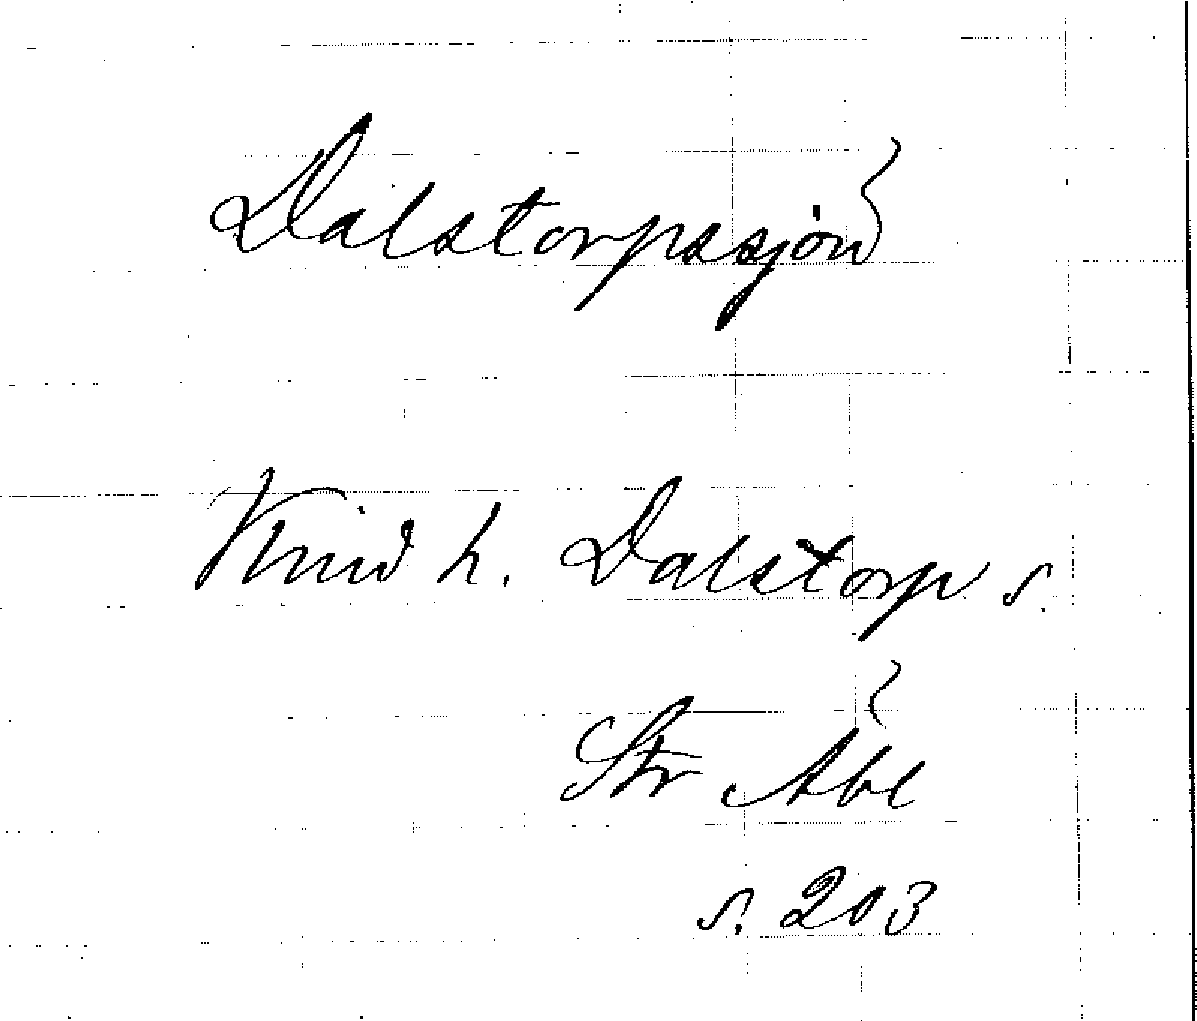 Dalstorpssjön
Kind h. Dalstorp s.
Str Abl
s. 203